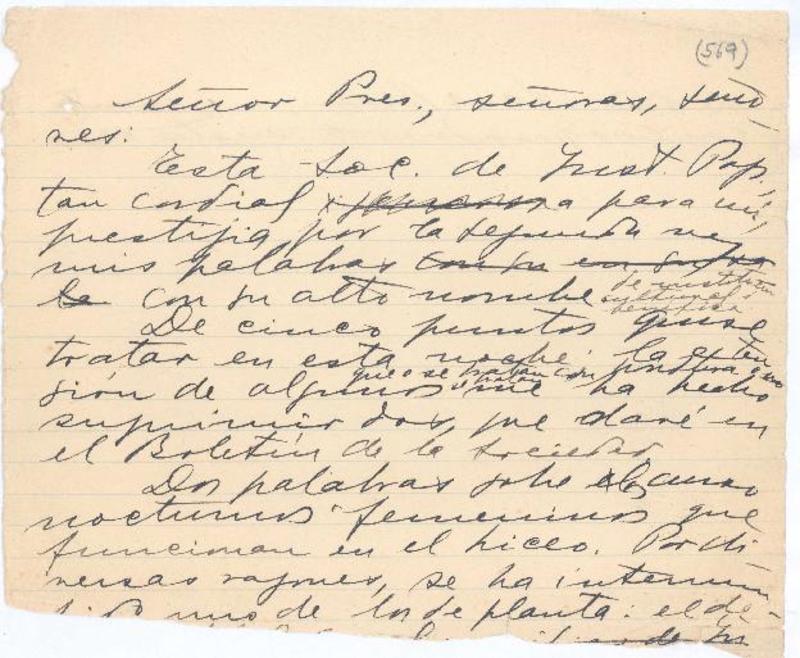 (569)
Señor Pres., señoras, seño-
res:
Esta Soc. de Inst. Pop.,
tan cordial para mí,
prestigia por la segunda vez
mis palabras con su
la con su alto nombre de institución
cultural i
benéfica
De cinco puntos quise
tratar en esta noche; la exten-
que o se tratan con o no
se tratan
sión de algunos me ha hecho
suprimir dos, que daré en
el Boletín de la Sociedad
Dos palabras sobre los cursos
nocturnos femeninos que
funcionan en el Liceo. Por di-
versas razones, se ha interrum-
uno de los de planta: el de